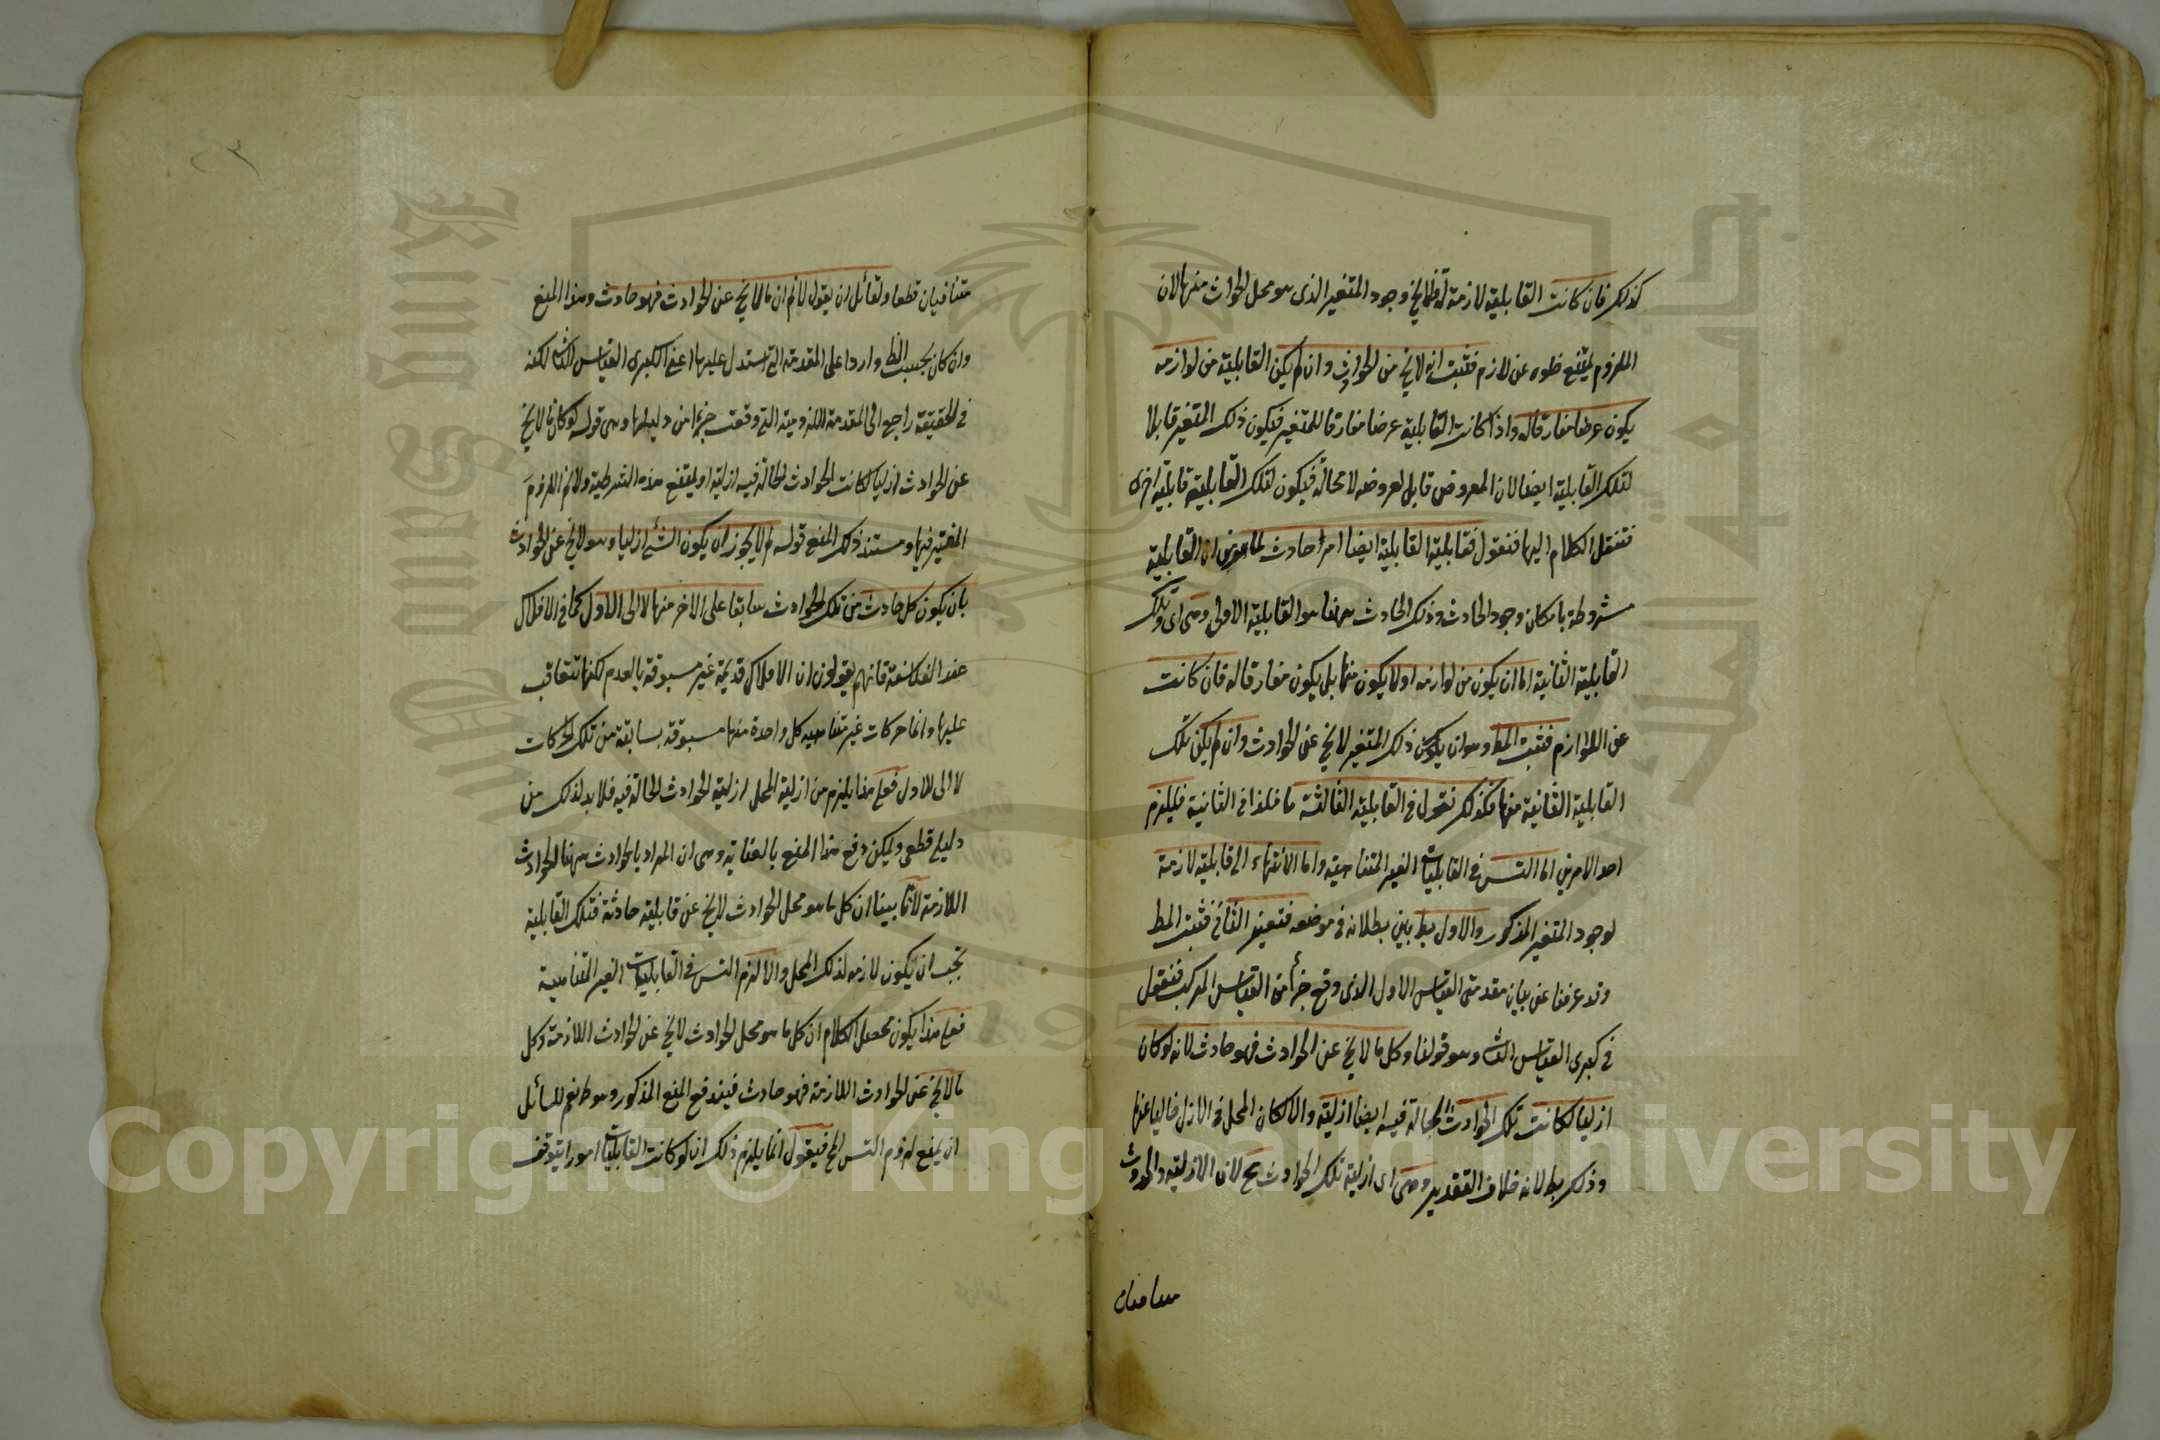 كذلك فان كانت القابلية لازمة له فظا لا يخ وجود المتغير الذى هو محل الحوادث منها لان
الملزوم يمتنع خلوه عن لازم فثبت انه لا يخ من الحوادث وان لم يكن القابلية من لوازمه
يكون عرضا مفارقا له واذا كانت القابلية عرضا مفارقا للمتغير فيكون ذلك المتغير قابلا
لتلك القابلية ايضا لان المعروض قابل لعروضه لا محالة فيكون لتلك القابلية قابلية اخرى
فننقل الكلام اليها فنقول فقابلية القابلية ايضا امر حادث لما ان القابلية
مشروطة بامكان وجود الحادث وذلك الحادث ههنا هو القابلية الاولى وهى اى تلك
القابلية الثانية اما ان يكون من لوازمه او لا يكون منها بل يكون مفارقا له فان كانت
عن اللوازم فثبت المط وهو ان يكون ذلك المتغير لا يخ عن الحوادث وان لم يكن تلك
القابلية الثانية منها فكذلك نقول فى القابلية الثالثة ما قلنا فى الثانية فيلزم
احد الامرين اما التس فى القابليات الغير المتناهية واما الانتهاء الى قابلية لازمة
لوجود المتغير المذكور والاول بط بين بطلانه فى موضعه فتعين الثانى فثبت المط
وقد عرفنا عن بيان مقدمتى القياس الاول الذى وقع جزأ من القياس المركب فنقول
فى كبرى القياس الثا وهو قولنا وكل ما لا يخ عن الحوادث فهو حادث لانه لو كان
ازليا لكانت تلك الحوادث الحالة فيه ايضا ازلية والا لكان المحل فى الازل خاليا عنها
وذلك بط لانه خلاف التقدير وهى اى ازلية تلك الحوادث مح لان الازلية والحدوث
متنافيان
متنافيان قطعا ولقائل ان يقول لا نم ان ما لا يخ عن الحوادث فهو حادث وهذا المنع
وان كان بحسب الظ واردا على المقدمة التى استدل عليها اعنى الكبرى القياس الثا لكنه
فى الحقيقة راجع الى المقدمة اللزومية التى وقعت جزءا من دليلها وهى قوله لو كان ما لا يخ
عن الحوادث ازليا لكانت الحوادث الحالة فيه ازلية او يمتنع هذه الشرطية ولا نم اللزوم
المعتبر فيها ومستند ذلك المنع قوله لم لا يجوز ان يكون الشئ ازليا وهو لا يخ عن الحوادث
بان يكون كل حادث من تلك الحوادث سابقا على الاخر منها لا الى الاول كما فى الافلاك
عند الفلاسفة فانهم يقولون ان الافلاك قديمة غير مسبوقة بالعدم لكنها تتعاقب
عليها دائما حركات غير متناهية كل واحدة منها مسبوقة بسابقة من تلك الحركات
لا الى الاول فعلى هذا يلزم من ازلية المحل ازلية الحوادث الحالة فيه فلا بد لذلك من
دليل قطعى ويمكن دفع هذا المنع بالعناية وهى ان المراد بالحوادث ههنا الحوادث
اللازمة لانا بينا ان كل ما هو محل الحوادث لا يخ عن قابلية حادثة فتلك القابلية
تجب ان يكون لازمه لذلك المحل والا لزم التس فى القابليات الغير المتناهية
فعلى هذا يكون محصل الكلام ان كل ما هو محل الحوادث لا يخ عن الحوادث اللازمة وكل
ما لا يخ عن الحوادث اللازمة فهو حادث فيندفع المنع المذكور وهو ظ نعم للسائل
ان يمنع لزوم التس الخ فيقول انما يلزم ذلك ان لو كانت القابليات امورا يتوقف
King Saud University
Copyright © King Saud University
1957